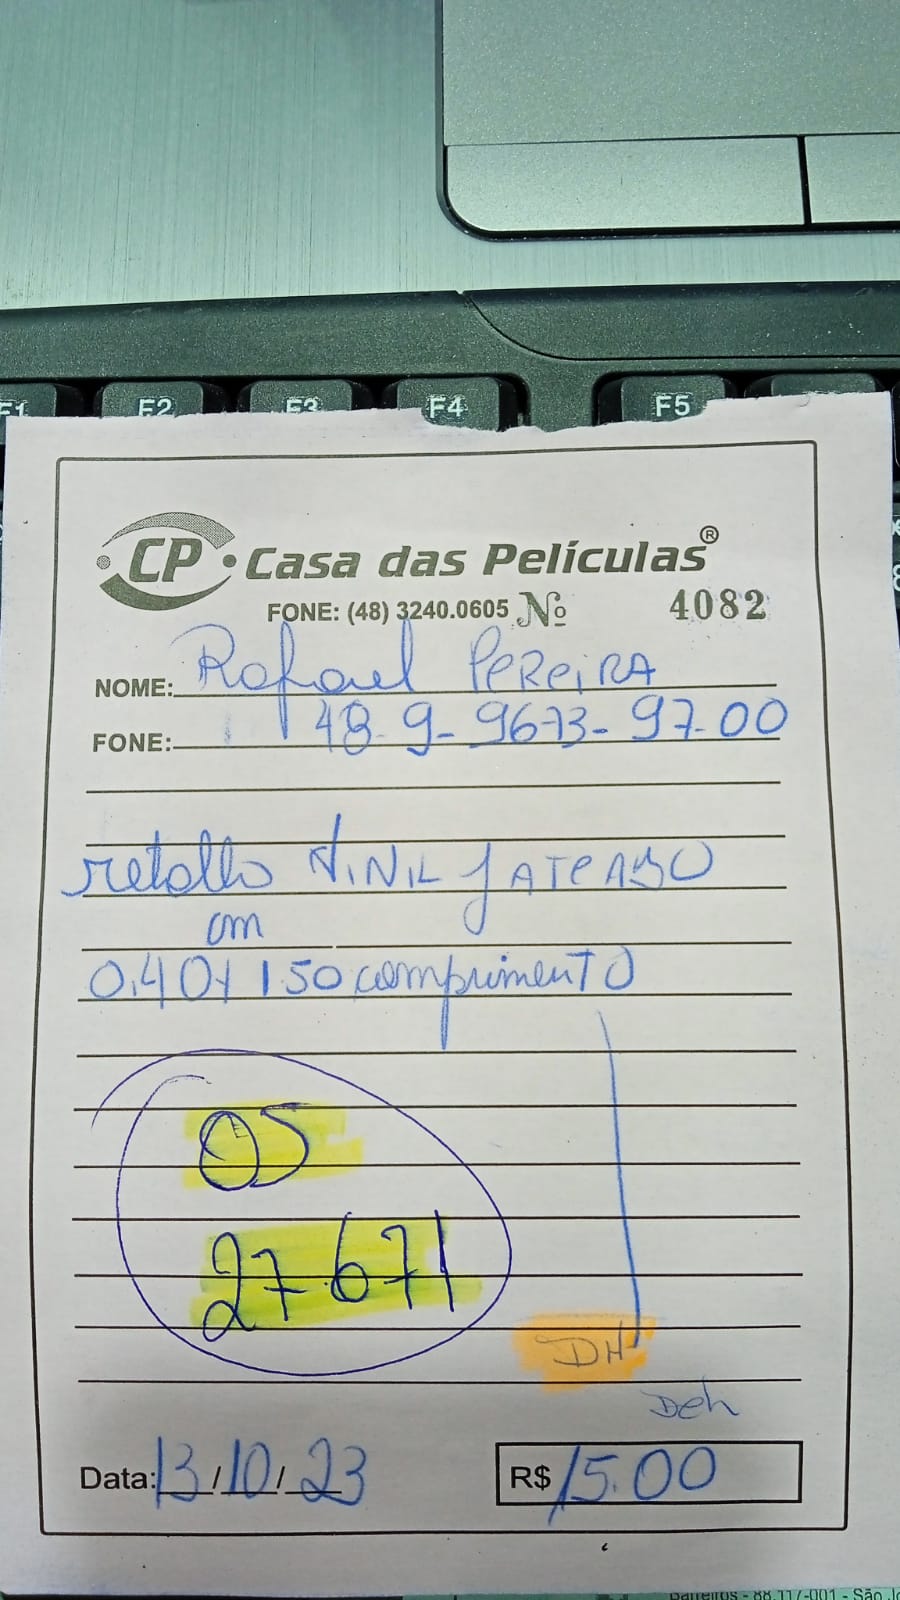 F1 F2 F3 F4 F5
CP Casa das Películas®
FONE: (48) 3240.0605 Nº 4082
NOME: Rafael PEREIRA
FONE: 48-9-9673-97-00
retalho VINIL JATEADO
cm
0,40x1.50 comprimento
OS
27.671
DH
Deh
Data: 13/10/23 R$ 15.00
Barreiros - 88.117-001 - São Jo